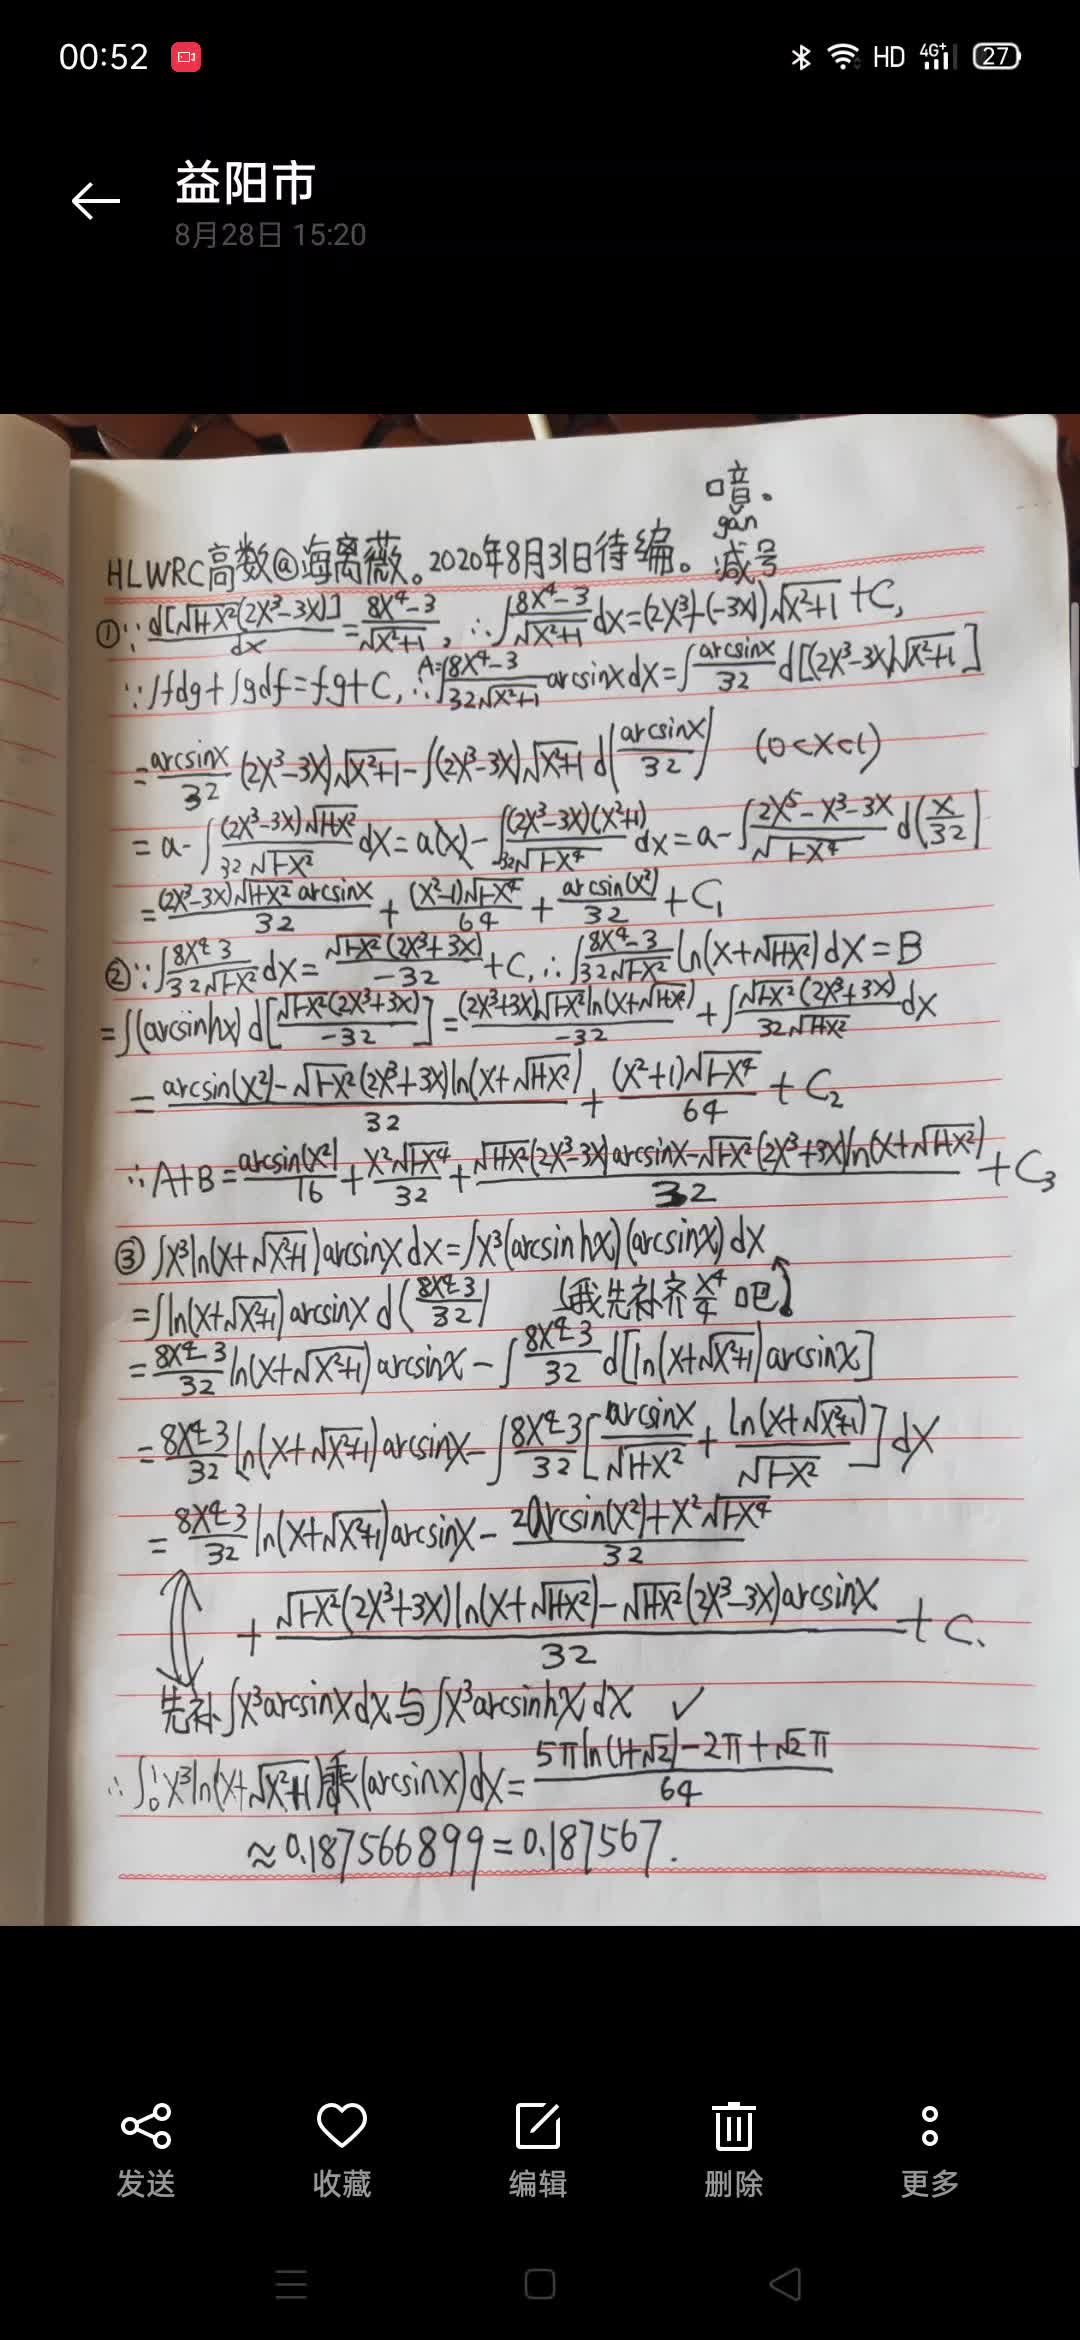 00:52
HD 4G+ 27
益阳市
8月28日 15:20
喑。
gǎn
HLWRC高数@海离薇。2020年8月31日待编。减号
①∵ d[√(1+X²)(2X³-3X)]/dx = (8X⁴-3)/√(X²+1), ∴∫(8X⁴-3)/√(X²+1) dx=(2X³+(-3X))√(X²+1)+C,
∵∫fdg+∫gdf=fg+C, ∴A=∫(8X⁴-3)/(32√(X²+1)) arcsinx dx=∫(arcsinx/32) d[(2X³-3X)√(X²+1)]
= (arcsinx/32)(2X³-3X)√(X²+1) - ∫(2X³-3X)√(X²+1) d(arcsinx/32) (0<X<1)
= a-∫((2X³-3X)√(1+X²))/(32√(1-X²)) dX = a(x)-∫((2X³-3X)(X²+1))/(32√(1-X⁴)) dx = a-∫(2X⁵-X³-3X)/√(1-X⁴) d(X/32)
= ((2X³-3X)√(1+X²) arcsinx)/32 + ((X²-1)√(1-X⁴))/64 + arcsin(X²)/32 + C₁
②∵∫(8X⁴-3)/(32√(1-X²)) dx = (√(1-X²)(2X³+3X))/-32 + C, ∴∫(8X⁴-3)/(32√(1-X²)) ln(x+√(1+X²))dX=B
=∫(arcsinhx) d[(√(1-X²)(2X³+3X))/-32] = ((2X³+3X)√(1-X²)ln(x+√(1+X²)))/-32 + ∫(√(1-X²)(2X³+3X))/(32√(1+X²)) dX
= (arcsin(X²)-√(1-X²)(2X³+3X)ln(X+√(1+X²)))/32 + ((X²+1)√(1-X⁴))/64 + C₂
∴A+B = arcsin(X²)/16 + X²√(1-X⁴)/32 + (√(1+X²)(2X³-3X)arcsinx-√(1-X²)(2X³+3X)ln(x+√(1+X²)))/32 + C₃
③∫X³ln(x+√(X²+1))arcsinx dx=∫X³(arcsinhx)(arcsinx)dx
=∫ln(x+√(X²+1))arcsinx d((8X⁴-3)/32) (我先补齐X⁴/4吧)
= (8X⁴-3)/32 ln(x+√(X²+1)) arcsinx - ∫(8X⁴-3)/32 d[ln(x+√(X²+1))arcsinx]
= (8X⁴-3)/32 ln(x+√(X²+1))arcsinx - ∫(8X⁴-3)/32 [arcsinx/√(1+X²) + ln(x+√(X²+1))/√(1-X²)] dX
= (8X⁴-3)/32 ln(x+√(X²+1))arcsinx - (2arcsin(X²)+X²√(1-X⁴))/32
+ (√(1-X²)(2X³+3X)ln(x+√(1+X²))-√(1+X²)(2X³-3X)arcsinx)/32 + C.
先补∫X³arcsinxdx与∫X³arcsinhxdx ✓
∴∫₀¹X³ln(x+√(X²+1))乘(arcsinx)dx = (5πln(1+√2)-2π+√2π)/64
≈0.187566899=0.187567.
发送 收藏 编辑 删除 更多